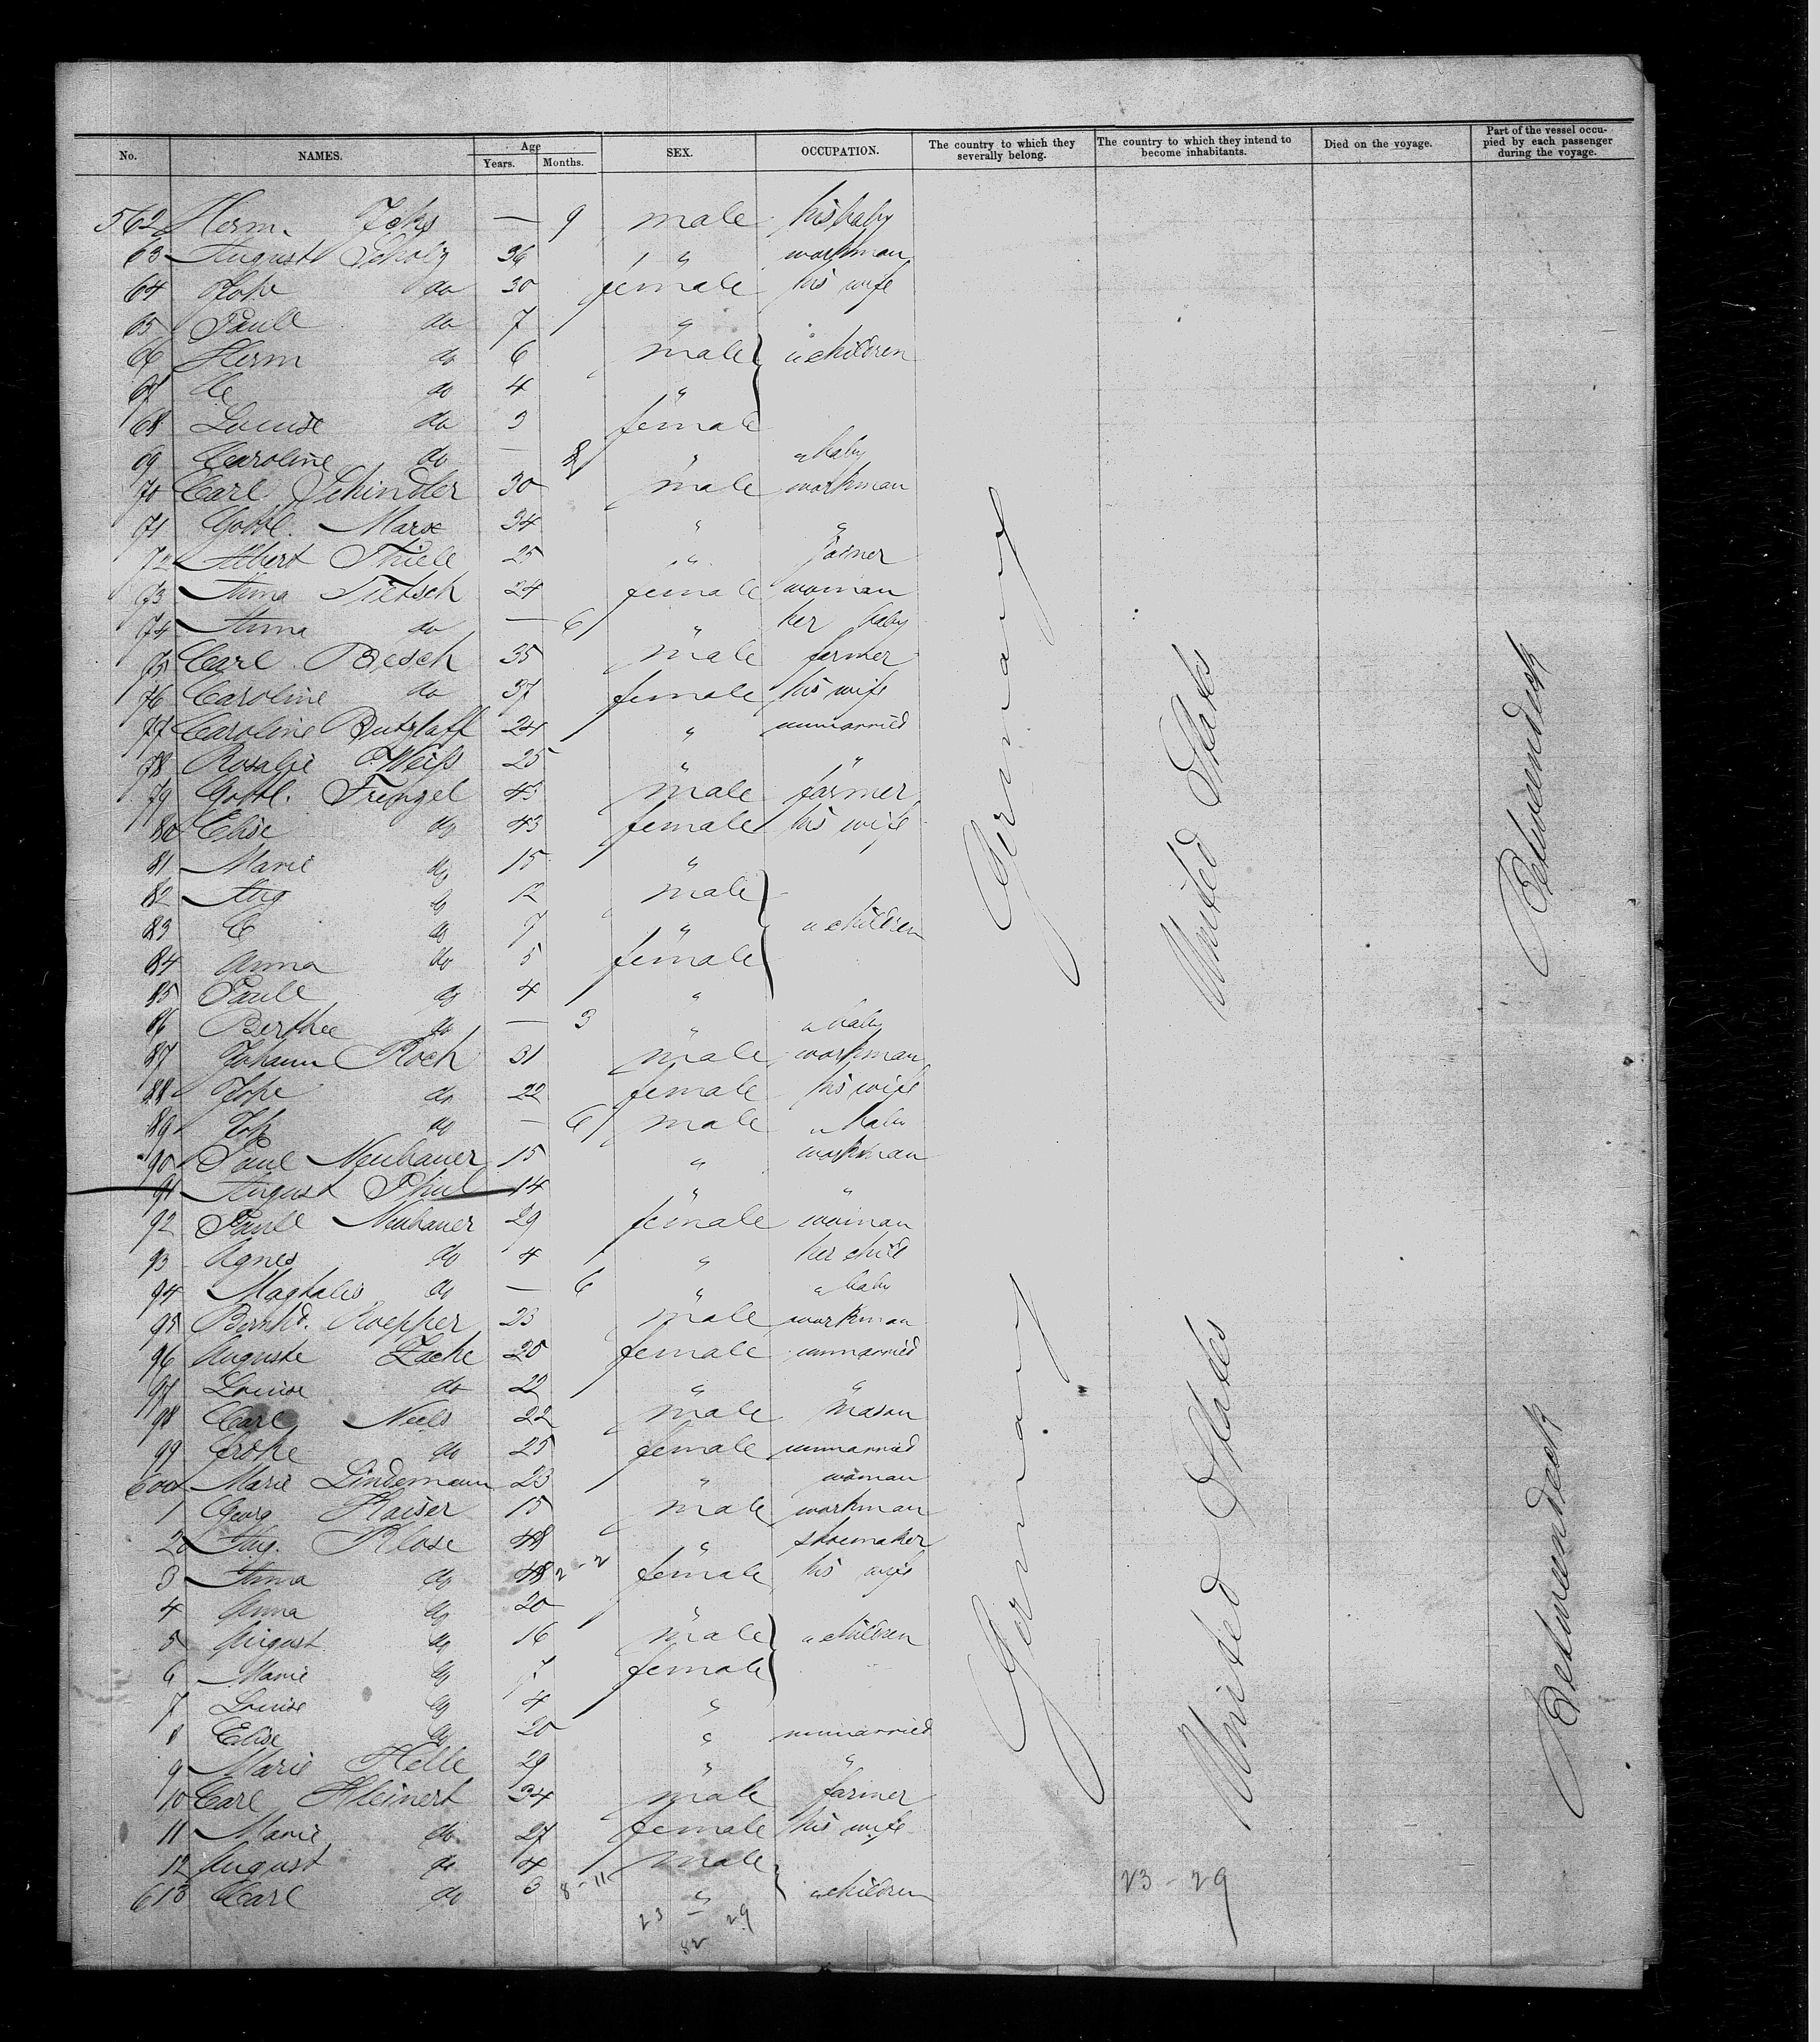 No. NAMES. Age Years. Months. SEX. OCCUPATION. The country to which they severally belong. The country to which they intend to become inhabitants. Died on the voyage. Part of the vessel occupied by each passenger during the voyage.
562 Herm. — 9 male his baby
63 August Scholz 36 " workman
64 do 30 female his wife
65 Paull do 7 "
66 Herm do 6 male " children
67 do 4 "
68 Louise do 3 female
69 Caroline do — " " baby
70 Carl Schindler 30 male workman
71 Gottl. Marx 34 " "
72 Albert Thiele 25 " joiner
73 Anna Tietsch 24 female woman
74 Anna do — 6 " her baby
75 Carl Besch 35 male farmer
76 Caroline do 37 female his wife
77 Caroline Butzlaff 24 " unmarried
78 Rosalie Weiß 25 " "
79 Gottl. Trengel 45 male farmer
80 Elise do 43 female his wife
81 Marie do 15 "
82 Aug do 12 male
83 C do 7 " " children
84 Anna do 5 female
85 Paull do 4 "
86 Berthe do — 3 " " baby
87 Johann Koch 31 male workman
88 do 22 female his wife
89 Joh do — 6 male " baby
90 Paul Neubauer 15 " workman
91 August 14 " "
92 Paull Neubauer 29 female woman
93 Agnes do 4 " her child
94 do — 6 " " baby
95 Bernhd. Koepper 23 male workman
96 Auguste Zache 20 female unmarried
97 Louise do 22 " "
98 Carl Neels 22 male mason
99 do 25 female unmarried
600 Marie Lindemann 23 " woman
1 Georg Kaiser 15 male workman
2 Aug. Klose 48 " shoemaker
3 Anna do 48 2-2 female his wife
4 Anna do 20 "
5 August do 16 male " children
6 Marie do 7 female
7 Louise do 4 "
8 Elise do 20 " unmarried
9 Marie Helle 29 " "
10 Carl Kleinert 34 male farmer
11 Marie do 27 female his wife
12 August do 4 male
613 Carl do 3 8-11 " " children
Germany
United States
Betweendeck
Germany
United States
Betweendeck
23 - 29
82
23 - 29